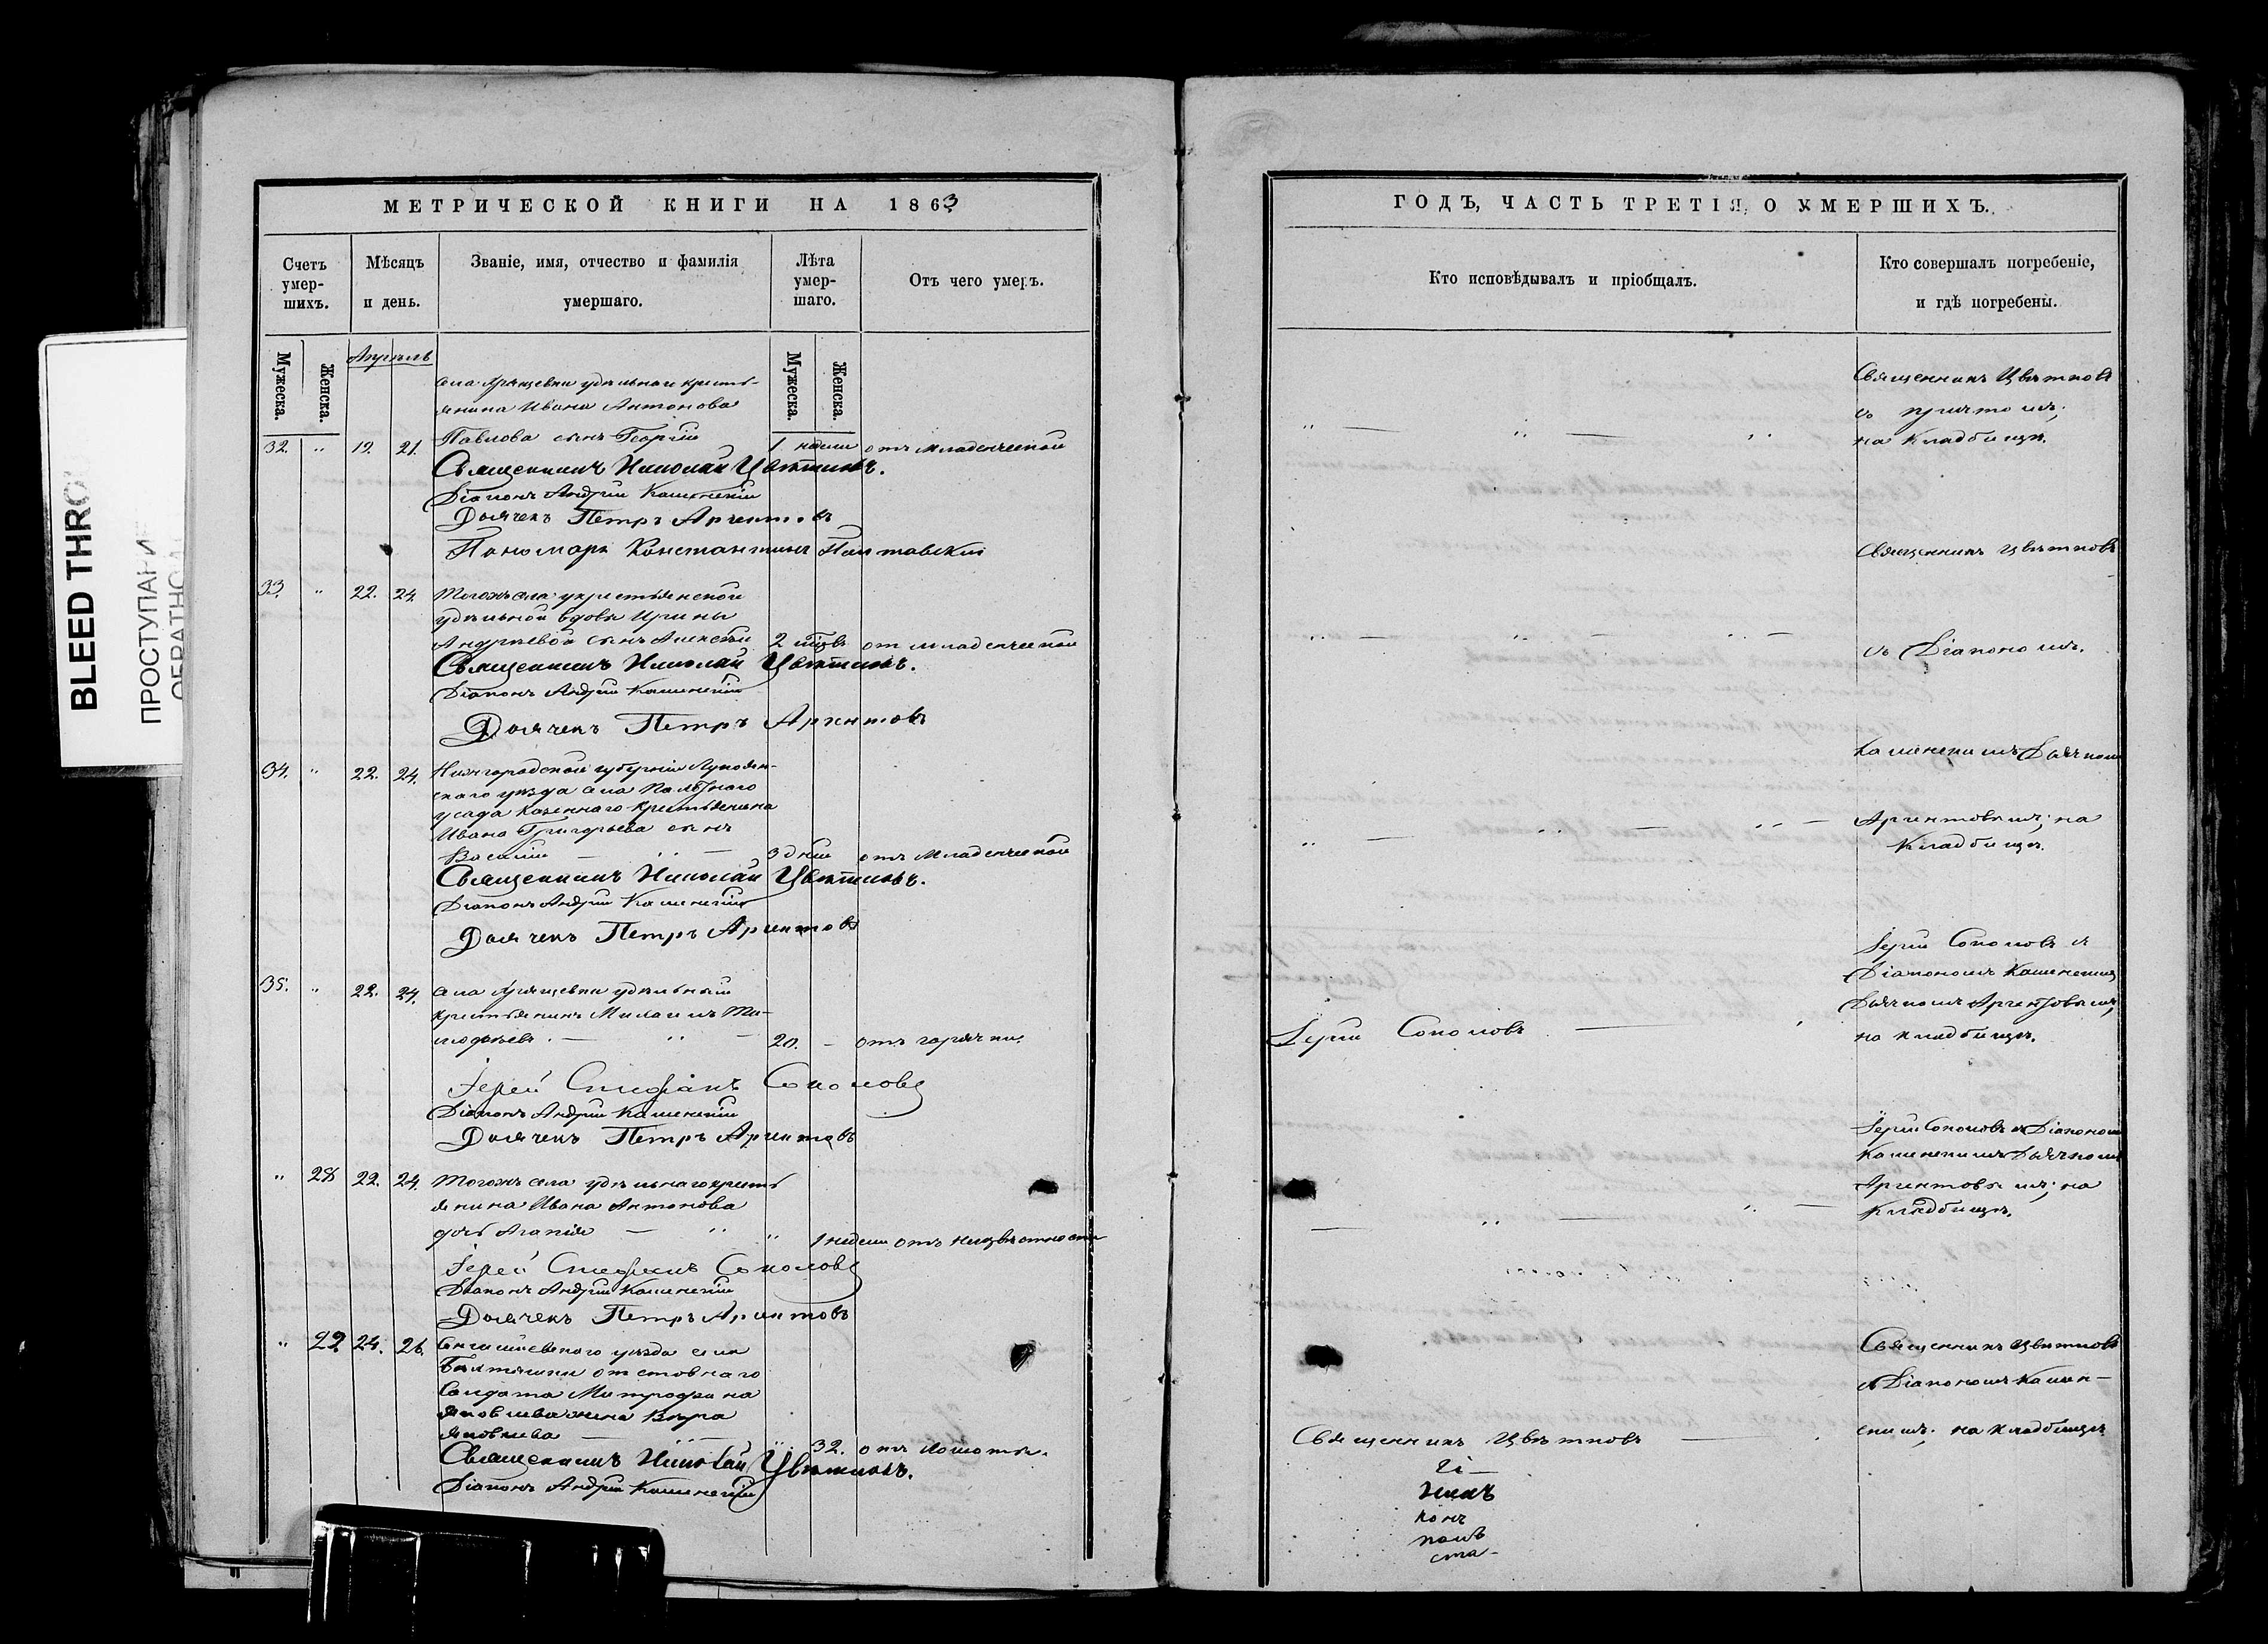 BLEED THRO
ПРОСТУПАНИ
ОБРАТНОЙ
МЕТРИЧЕСКОЙ КНИГИ НА 1863
Счетъ умер-шихъ.
Мѣсяцъ и день.
Званіе, имя, отчество и фамилія умершаго.
Лѣта умер-шаго.
Отъ чего умеръ.
Мужеска.
Женска.
Апрѣль
Мужеска.
Женска.
села Хрящевки удѣльнаго кресть-
янина Ивана Антонова
32. " 19. 21. Павлова сынъ Георгій 1 недели отъ младенческой
Священникъ Николай Цвѣтковъ.
Діаконъ Андрей Каменскій
Дьячекъ Петръ Аргентовъ
Пономарь Константинъ Полтавскій
33. " 22. 24. Тогожъ села у крестьянской
удѣльной вдовы Ирины
Андреевой сынъ Алексѣй 2 мѣсяцовъ от младенческой
Священникъ Николай Цвѣтковъ.
Діаконъ Андрей Каменскій
Дьячекъ Петръ Аргентовъ
34. " 22. 24. Нижегородской губерніи Лукоян-
скаго уѣзда села
усада казеннаго крестьянина
Ивана Григорьева сынъ
Василій — " — 3 дней отъ младенческой
Священникъ Николай Цвѣтковъ.
Діаконъ Андрей Каменскій
Дьячекъ Петръ Аргентовъ
35. " 22. 24. села Хрящевки удѣльный
крестьянинъ Михаилъ Ти-
мофѣевъ. — " — 20. - отъ горячки.
Іерей Стефанъ Соколовъ
Діаконъ Андрей Каменскій
Дьячекъ Петръ Аргентовъ
" 28 22. 24. Тогожъ села удѣльнаго кресть
янина Ивана Антонова
дочь Агапія — " " 1 недели отъ неизвѣстности
Іерей Стефанъ Соколовъ
Діаконъ Андрей Каменскій
Дьячекъ Петръ Аргентовъ
" 29 24. 26. Сенгилѣевскаго уѣзда села
отставнаго
Солдата Митрофана
Яковлева жена Вѣра
Яковлева — " — " 32. отъ ломоты.
Священникъ Николай Цвѣтковъ.
Діаконъ Андрей Каменскій
ГОДЪ, ЧАСТЬ ТРЕТІЯ, О УМЕРШИХЪ.
Кто исповѣдывалъ и пріобщалъ.
Кто совершалъ погребеніе, и гдѣ погребены.
Священникъ Цвѣтковъ
съ причтомъ;
" — " — " на кладбищѣ.
Священникъ Цвѣтковъ
" — " — " — съ Діакономъ.
Каменскимъ Дьячкомъ
" — " — " — Аргентовымъ; на
кладбищѣ.
Іерей Соколовъ съ
Діакономъ Каменскимъ
Дьячкомъ Аргентовымъ,
Іерей Соколовъ — на кладбищѣ.
Іерей Соколовъ съ Діакономъ
Каменскимъ Дьячкомъ
Аргентовымъ; на
— " — " — кладбищѣ.
Священникъ Цвѣтковъ
съ Діакономъ Камен-
Священникъ Цвѣтковъ — скимъ; на кладбищѣ
конъ
ста-